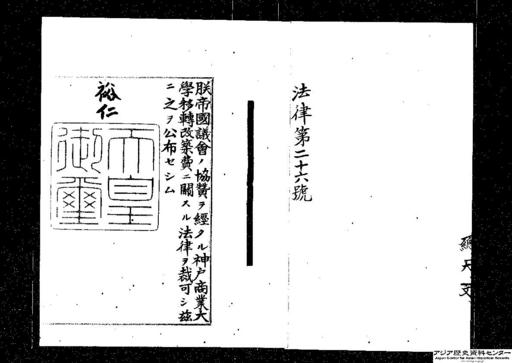 法律第二十六號
朕帝國議會ノ協贊ヲ經タル神戸商業大
學移轉改築費ニ關スル法律ヲ裁可シ玆
ニ之ヲ公布セシム
裕仁
天皇
御璽
アジア歴史資料センター
Japan Center for Asian Historical Records